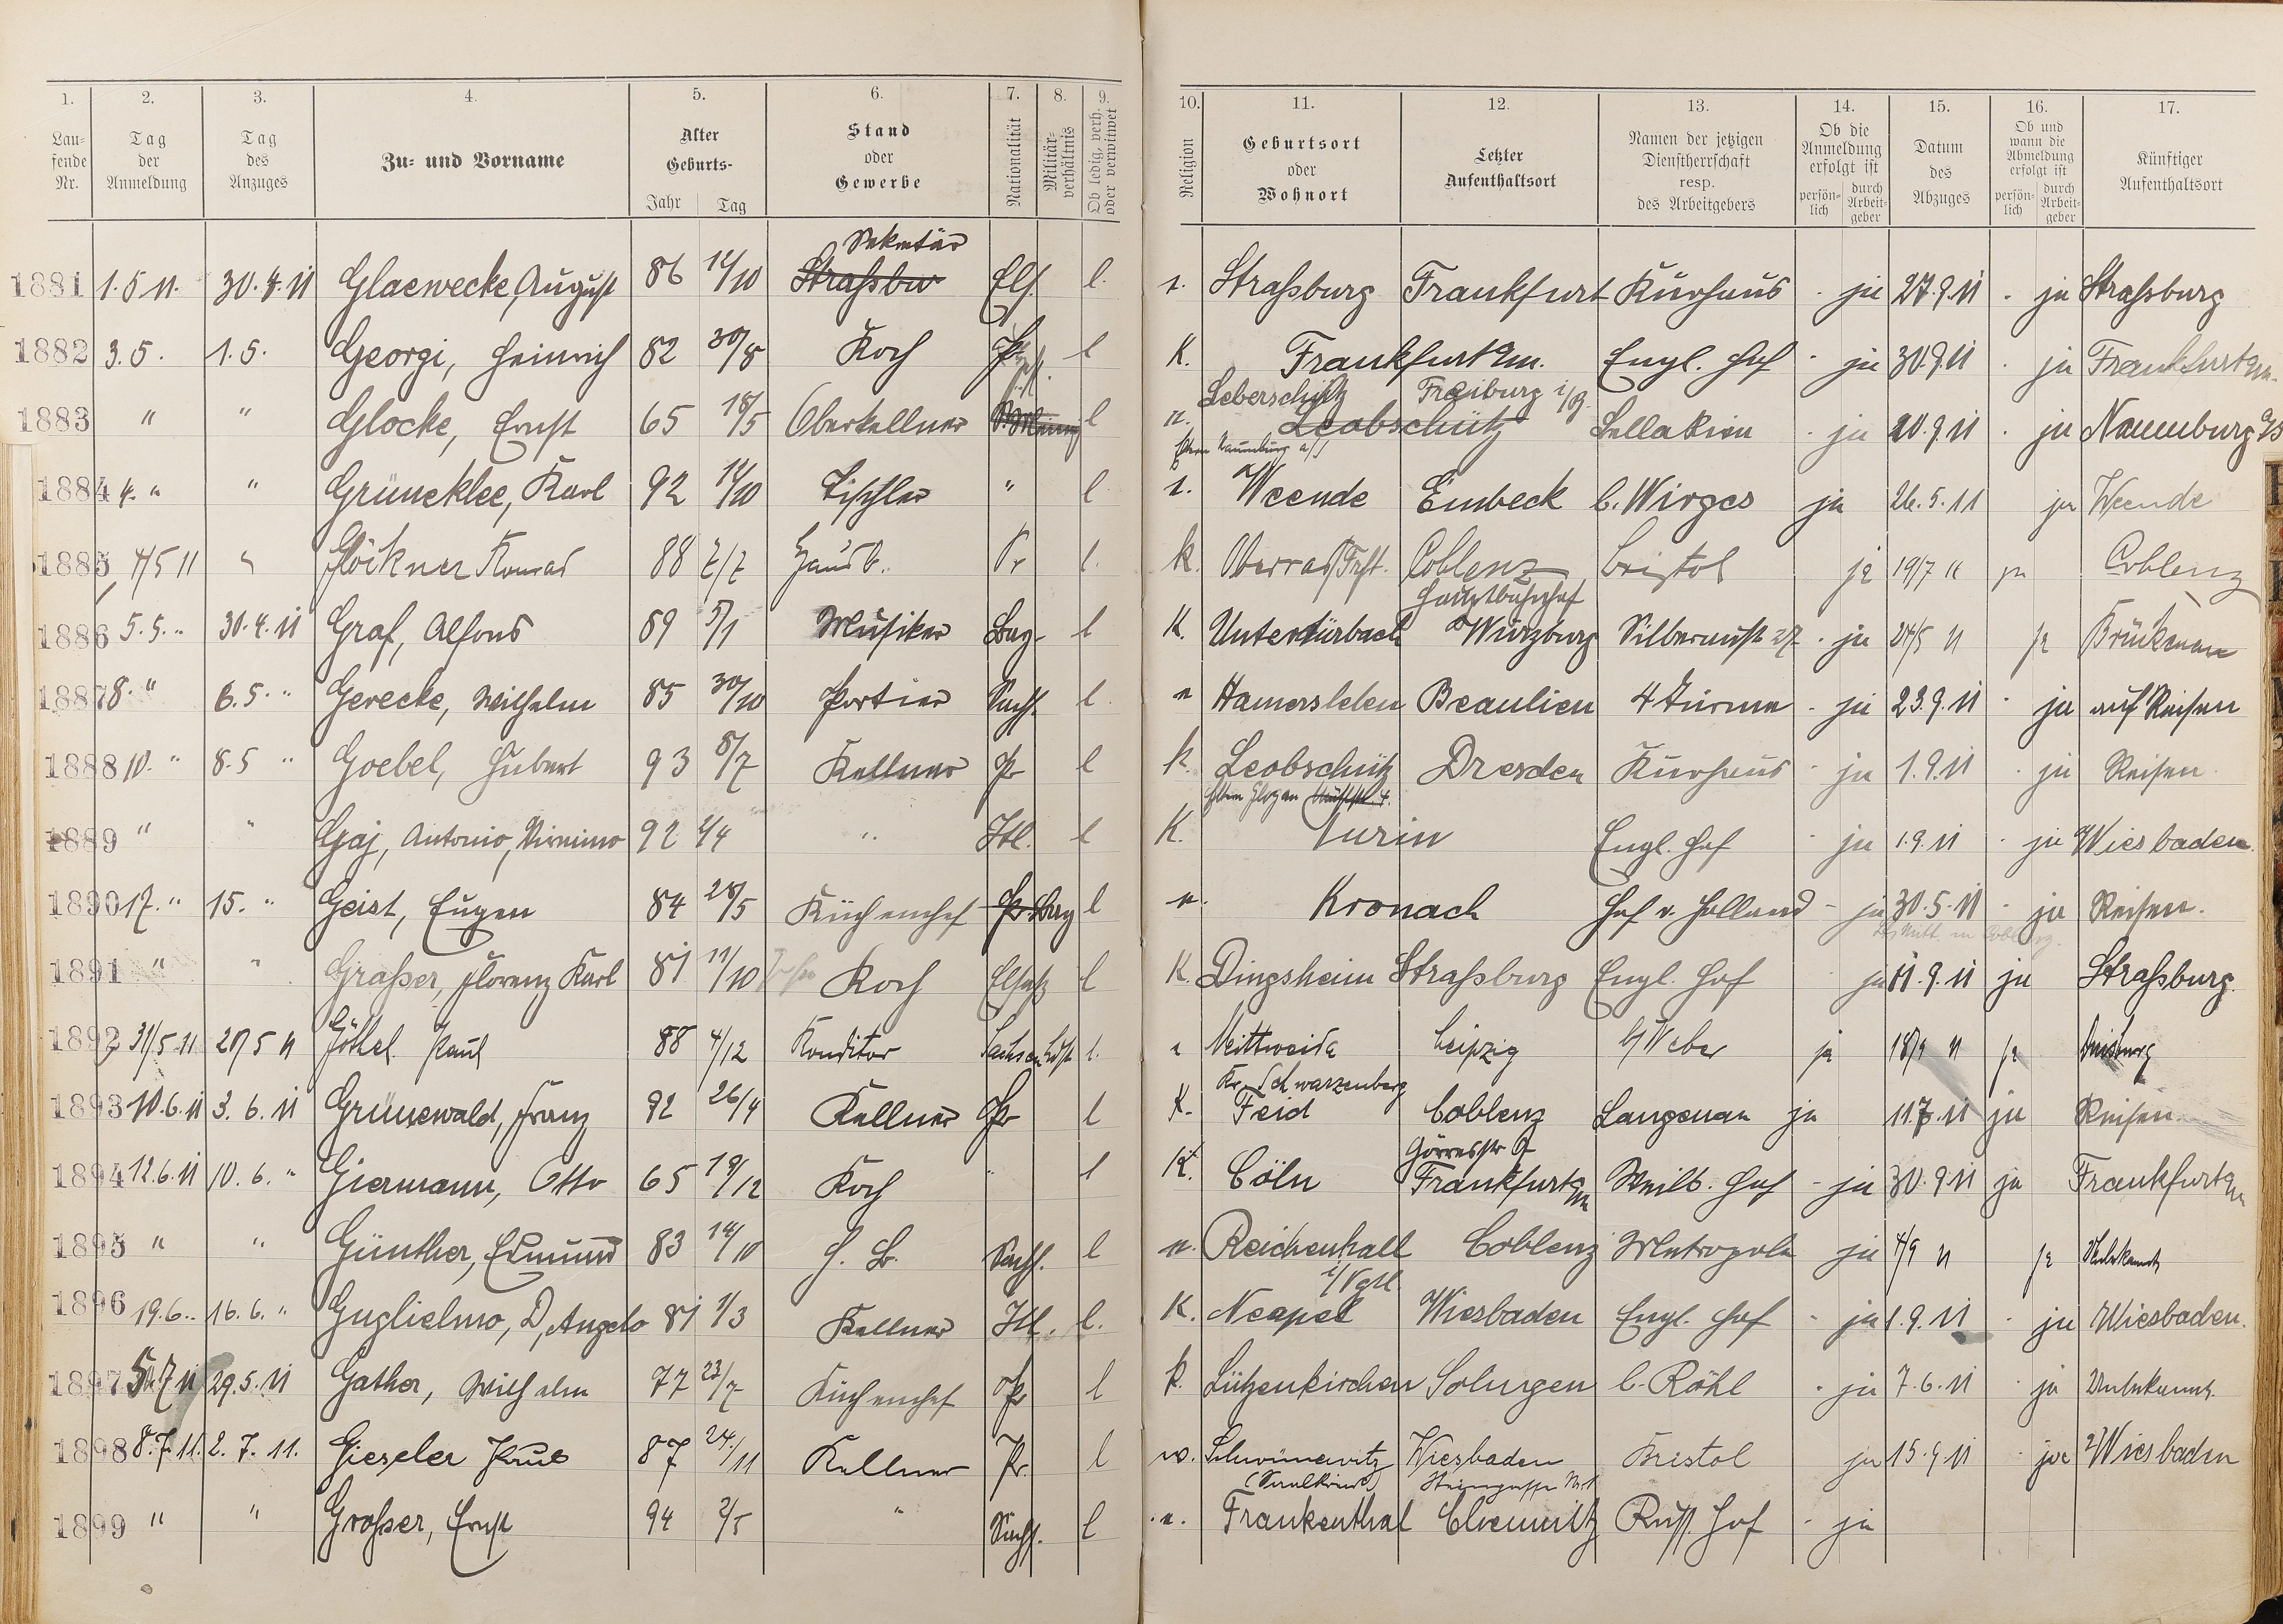 1. 2. 3. 4. 5. 6. 7. 8. 9. 10. 11. 12. 13. 14. 15. 16. 17.
Laufende Nr. Tag der Anmeldung Tag des Anzuges Zu- und Vorname Alter Geburts- Jahr Tag Stand oder Gewerbe Nationalität Militärverhältnis Ob ledig, verh. oder verwitwet Religion Geburtsort oder Wohnort Letzter Aufenthaltsort Namen der jetzigen Dienstherrschaft resp. des Arbeitgebers Ob die Anmeldung erfolgt ist persönlich durch Arbeitgeber Datum des Abzuges Ob und wann die Abmeldung erfolgt ist persönlich durch Arbeitgeber Künftiger Aufenthaltsort
Sekretär
1881 1.5.11. 30.4.11 Glaewecke, August 86 12/10 Straßbur Els. l. Straßburg Frankfurt Kurhaus ja 27.9.11 ja Straßburg
1882 3.5. 1.5. Georgi, Heinrich 82 30/8 Koch Pr l K. Frankfurt a/m. Engl. Hof ja 30.9.11 ja Frankfurt a/m.
Leberschütz Freiburg
1883 " " Glocke, Ernst 65 18/5 Oberkellner l Leobschütz ja 20.9.11 ja Naumburg a/S
Naumburg a/S
1884 4. " " Grüneklee, Karl 92 12/10 Tischler " l Weende Einbeck b. Wirges ja 26.5.11 ja Weende
1885 4/5 11 " Glöckner Konrad 88 2/7 Hausb. Pr l. k. Oberrad/Frft. Coblenz Bristol ja 19/7 11 ja Coblenz
Hauptbahnhof
1886 5.5. " 30.4.11 Graf, Alfons 89 5/1 Musiker Bay. l K. Unterdürbach Würzburg ja 24/5 11 ja
1887 8. " 6.5. " Gerecke, Wilhelm 85 30/10 Portier Sachs. l Hamersleben Beaulieu 4 Türme ja 23.9.11 ja auf Reisen
1888 10. " 8.5 " Goebel, Hubert 93 8/7 Kellner Pr l k. Leobschütz Dresden Kurhaus ja 1.9.11 ja Reisen.
1889 " " Gaj, Antonio, 92 2/4 " Itl. l K. Turin Engl. Hof ja 1.9.11 ja Wiesbaden.
1890 17. " 15. " Geist, Eugen 84 28/5 Küchenchef Pr. Bay l Kronach Hof v. Holland ja 30.5.11 ja Reisen.
1891 " " Graßer, Florenz Karl 81 11/10 Koch Elsaß l K. Dingsheim Straßburg Engl. Hof ja 11.9.11 ja Straßburg.
1892 31/5 11 29/5 11 Göthel Paul 88 4/12 Konditor Sachsen l. Mittweida Leipzig b/ Weber ja 18/9 11 ja Duisburg
Kr. Schwarzenberg
1893 10.6.11 3.6.11 Grunewald, Franz 92 26/4 Kellner Pr l K. Feid Coblenz Langenau ja 11.7.11 ja Reisen
Görresstr 9
1894 12.6.11 10.6. " Giermann, Otto 65 19/12 Koch " l K. Cöln Frankfurt a/m Weilb. Hof ja 30.9.11 ja Frankfurt a/m
1895 " " Günther, Edmund 83 14/10 H. B. Sachs. l Reichenhall Coblenz Metropole ja 4/9 11 ja Unbekannt
i/Vgtl.
1896 19.6. " 16.6. " Guglielmo, D, Angelo 81 1/3 Kellner Itl. l. K. Neapel Wiesbaden Engl. Hof ja 1.9.11 ja Wiesbaden.
1897 5.7 11 29.5.11 Gather, Wilhelm 77 23/7 Küchenchef Pr l k. Lützenkirchen Solingen b. Röhl ja 7.6.11 ja Unbekannt.
1898 8.7.11. 2.7.11. Gieseler Paul 87 24/11 Kellner Pr. l Wiesbaden Bristol ja 15.9.11 ja Wiesbaden
1899 " " Großer, Ernst 94 2/5 " Sachs. l Frankenthal Chemnitz Russ. Hof ja